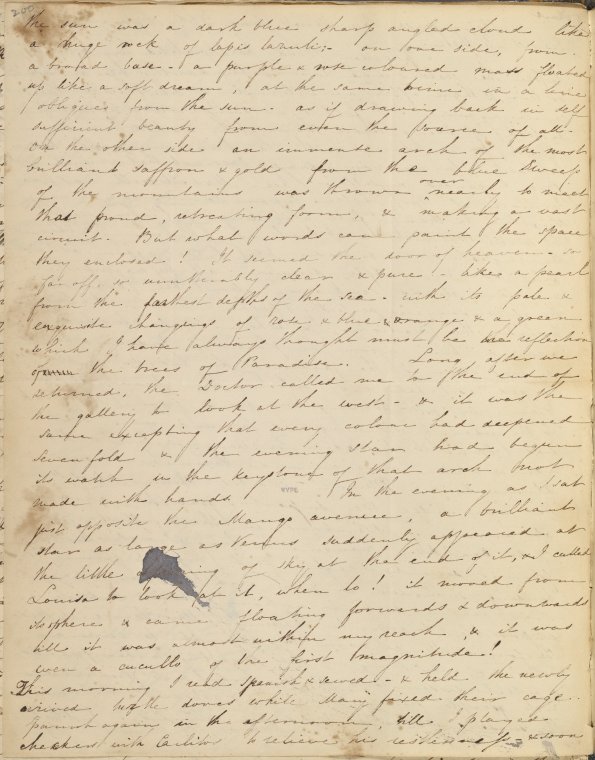 200
the sun was a dark blue sharp angled cloud like
a huge rock of lapis lazuli;- on one side, from
a broad base - a purple & rose coloured mass floated
up like a soft dream, at the same time in a line
oblique from the sun - as if drawing back in self
sufficient beauty from even the source of all -
on the other side an immense arch of the most
brilliant saffron & gold from the blue sweep
of the mountains was thrown over nearly to meet
that proud, retreating form, & making a vast
circuit. But what words can paint the space
they enclosed! It seemed the door of heaven - so
far off, so unutterably clear & pure - like a pearl
from the farthest depths of the sea - with its pale &
exquisite changings of rose & blue & orange & a green
which I have always thought must be the reflection
of the trees of Paradise. Long after we
returned, the Doctor called me to the end of
the gallery to look at the west - & it was the
same excepting that every colour had deepened
seven fold & the evening star had begun
its watch in the keystone of that arch not
made with hands. In the evening as I sat
NYPL
just opposite the Mango avenue, a brilliant
star as large as Venus suddenly appeared at
the little of sky at the end of it, & I called
Louisa to look at it, when lo! it moved from
its sphere & came floating forwards & downwards
till it was almost within my reach, & it was
even a cucullo of the first magnitude!
This morning I read Spanish & sewed - & held the newly
arrived turtle doves while Mary fixed their cage.
again in the afternoon, till I played
checkers with Carlitos to relieve his restlessness - & soon